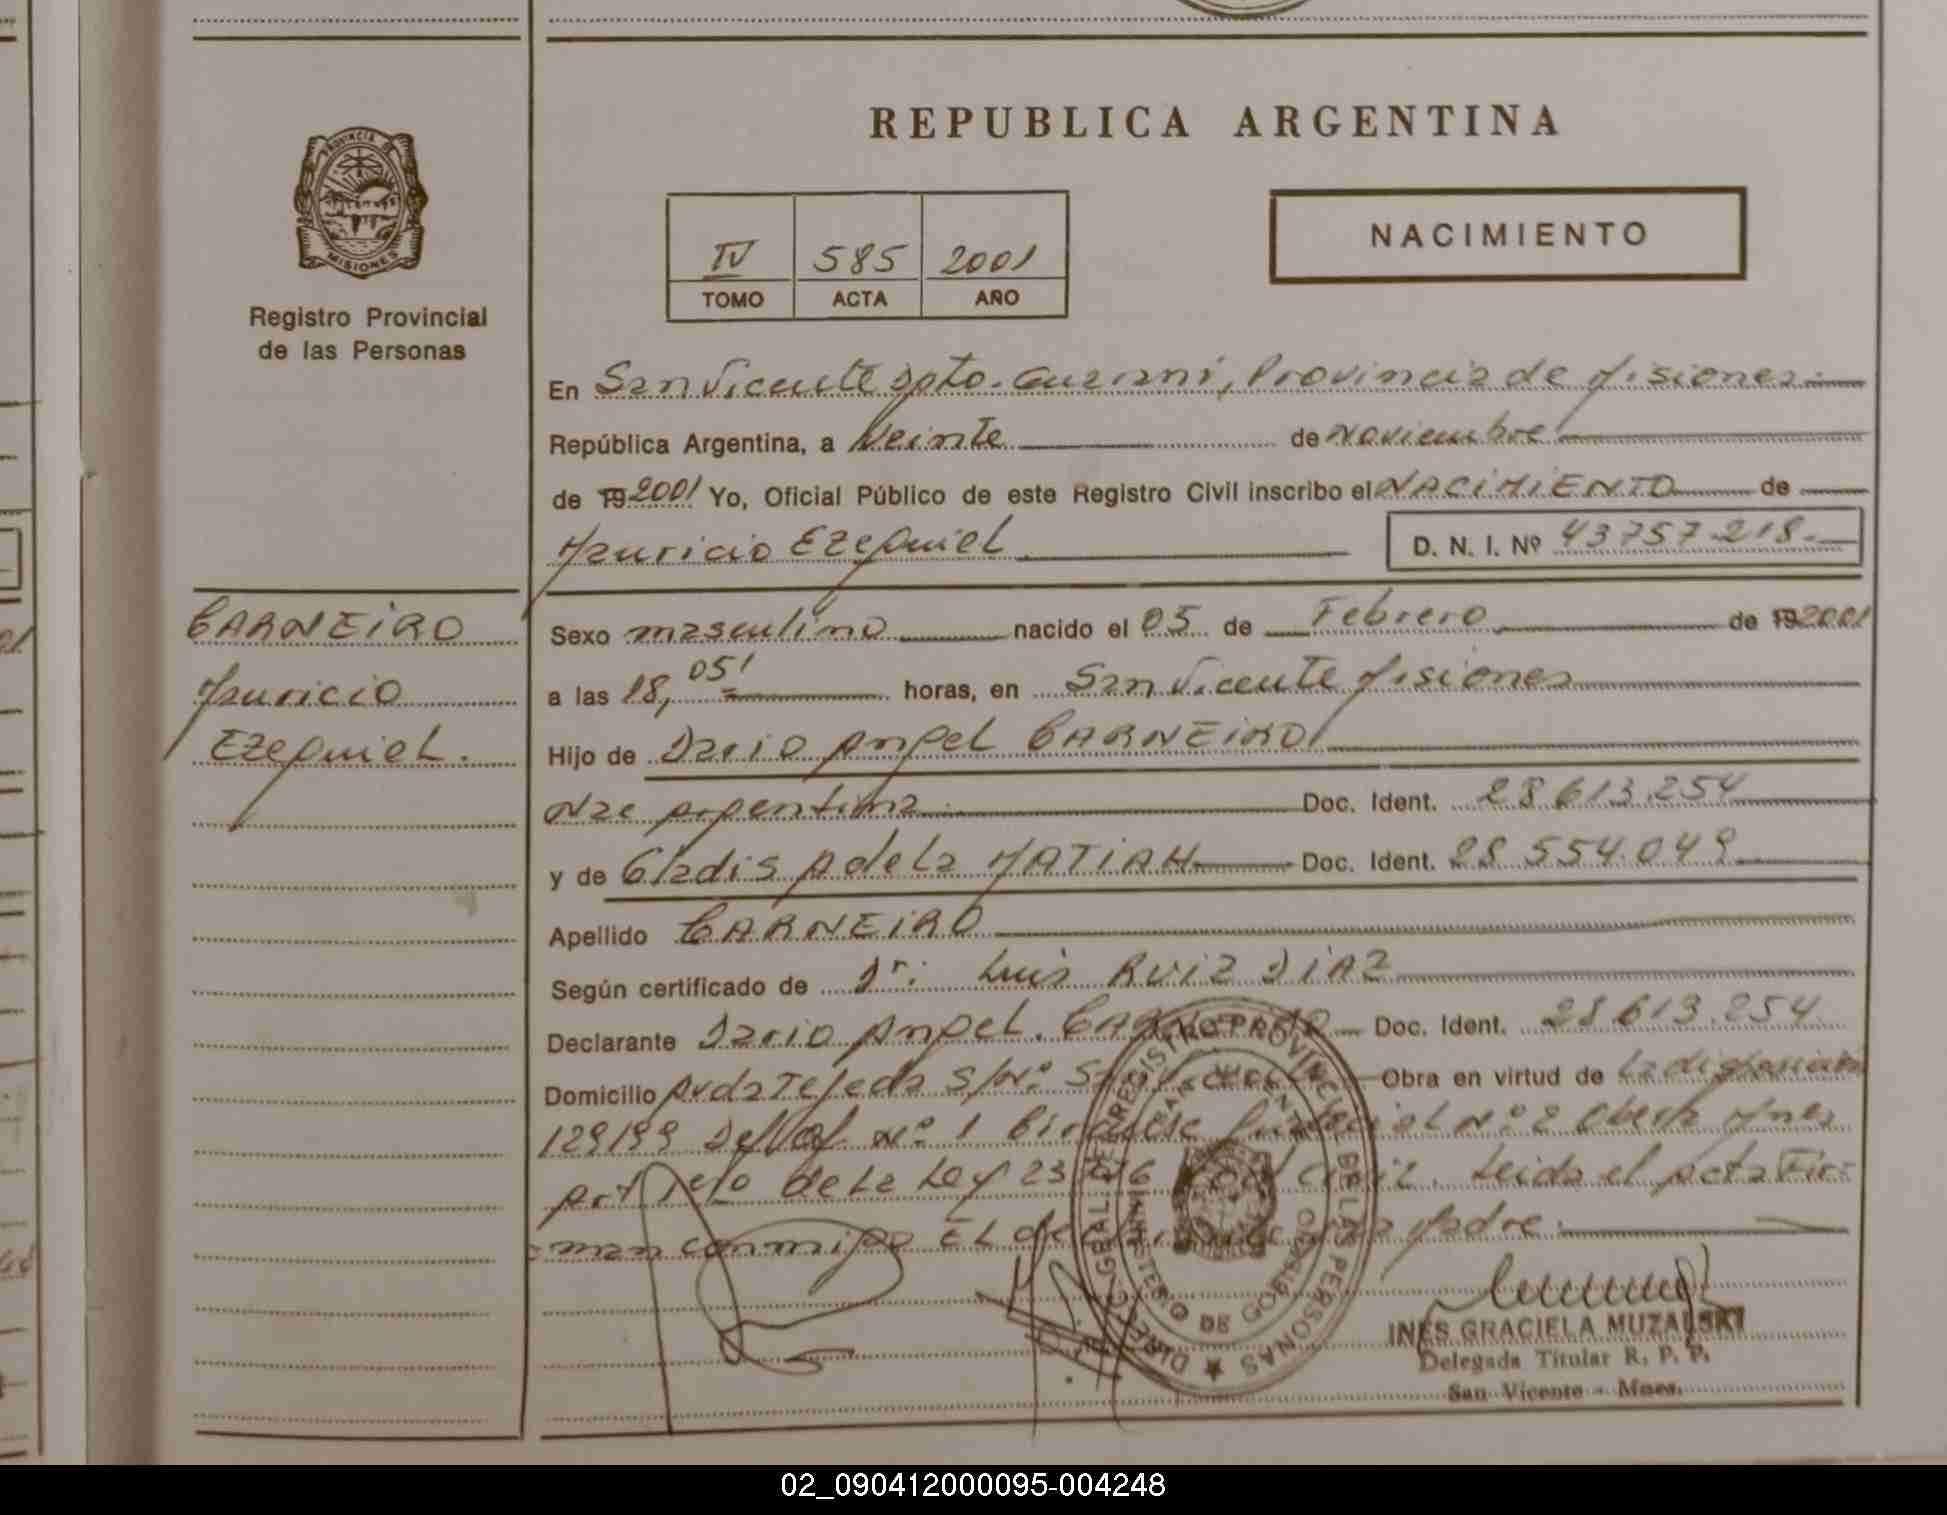 REPUBLICA ARGENTINA
PROVINCIA DE MISIONES
Registro Provincial
de las Personas
IV 585 2001
TOMO ACTA AÑO
NACIMIENTO
En San Vicente Dpto. Guarani, Provincia de Misiones.
República Argentina, a Veinte de Noviembre
de 19 2001 Yo, Oficial Público de este Registro Civil inscribo el NACIMIENTO de
Mauricio Ezequiel D. N. I. Nº 43757.218.
CARNEIRO
Mauricio
Ezequiel.
Sexo masculino nacido el 05 de Febrero de 19 2001
a las 18, 05' horas, en San Vicente Misiones
Hijo de Dario Angel CARNEIRO
Nac Argentina Doc. Ident. 28.613.254
y de Gladis Adela MATIAK Doc. Ident. 28.554.049
Apellido CARNEIRO
Según certificado de Dr: Luis RUIZ DIAZ
Declarante Dario Angel. CARNEIRO Doc. Ident. 28.613.254
Domicilio Avda Tejeda S/Nº San Vicente Obra en virtud de La disposición
129/99 Del Of. Nº 1 Nº 2 Oberá Mnes
Art 1º de La Ley 23 Leida el acta Fir=
=man conmigo EL declarante y la Madre.
DIRECC. GRAL. DE REGISTRO PROVINCIAL DE LAS PERSONAS
MINISTERIO DE GOBIERNO
INES GRACIELA MUZALSKI
Delegada Titular R. P. P.
San Vicente - Mnes.
02_090412000095-004248